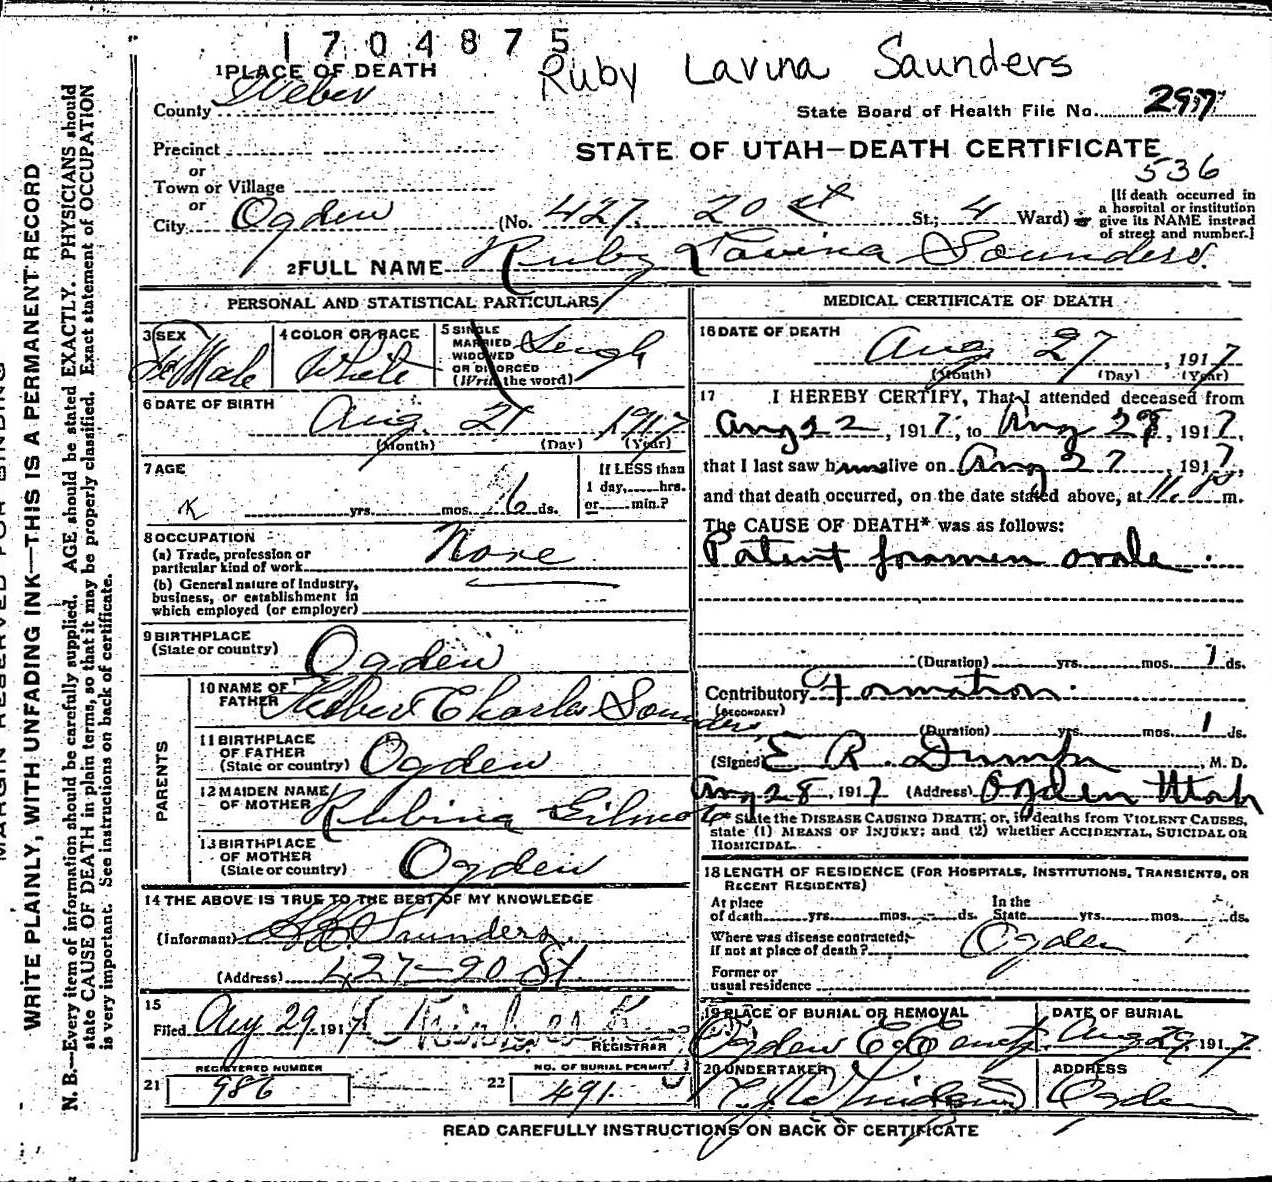 1704875
Ruby Lavina Saunders
1 PLACE OF DEATH
County Weber
State Board of Health File No. 297
Precinct
STATE OF UTAH—DEATH CERTIFICATE
536
or
Town or Village
or
City Ogden (No. 427, 20 St St.; 4 Ward)
[If death occurred in a hospital or institution give its NAME instead of street and number.]
2 FULL NAME Ruby Lavina Saunders.
PERSONAL AND STATISTICAL PARTICULARS
3 SEX FeMale
4 COLOR OR RACE White
5 SINGLE MARRIED WIDOWED OR DIVORCED (Write the word) Singl
6 DATE OF BIRTH
Aug. 21 1917
(Month) (Day) (Year)
7 AGE
yrs. mos. 6 ds.
If LESS than 1 day, hrs. or min.?
8 OCCUPATION
(a) Trade, profession or particular kind of work None
(b) General nature of Industry, business, or establishment in which employed (or employer)
9 BIRTHPLACE
(State or country) Ogden
PARENTS
10 NAME OF FATHER Heber Charles Saunders,
11 BIRTHPLACE OF FATHER
(State or country) Ogden
12 MAIDEN NAME OF MOTHER Rubina Gilmo
13 BIRTHPLACE OF MOTHER
(State or country) Ogden
14 THE ABOVE IS TRUE TO THE BEST OF MY KNOWLEDGE
(Informant) Saunders
(Address) 427—20 St
15
Filed Aug 29, 1917
REGISTRAR
REGISTERED NUMBER
21 986
NO. OF BURIAL PERMIT
22 491.
MEDICAL CERTIFICATE OF DEATH
16 DATE OF DEATH
Aug 27, 1917
(Month) (Day) (Year)
17 I HEREBY CERTIFY, That I attended deceased from
Aug 22, 1917, to Aug 28, 1917,
that I last saw h alive on Aug 27, 1917,
and that death occurred, on the date stated above, at m.
The CAUSE OF DEATH* was as follows:
Patent foramen ovale.
(Duration) yrs. mos. 1 ds.
Contributory Formation.
(SECONDARY)
(Duration) yrs. mos. 1 ds.
(Signed) E R. Dumke, M. D.
Aug 28, 1917 (Address) Ogden Utah
State the DISEASE CAUSING DEATH, or, in deaths from VIOLENT CAUSES, state (1) MEANS OF INJURY; and (2) whether ACCIDENTAL, SUICIDAL OR HOMICIDAL.
18 LENGTH OF RESIDENCE (FOR HOSPITALS, INSTITUTIONS, TRANSIENTS, OR RECENT RESIDENTS)
At place of death yrs. mos. ds. In the State yrs. mos. ds.
Where was disease contracted, if not at place of death? Ogden
Former or usual residence
19 PLACE OF BURIAL OR REMOVAL
Ogden City Cemty.
DATE OF BURIAL
Aug 29, 1917
20 UNDERTAKER
ADDRESS
Ogden
READ CAREFULLY INSTRUCTIONS ON BACK OF CERTIFICATE
MARGIN RESERVED FOR BINDING
WRITE PLAINLY, WITH UNFADING INK—THIS IS A PERMANENT RECORD
N. B.—Every item of information should be carefully supplied. AGE should be stated EXACTLY. PHYSICIANS should
state CAUSE OF DEATH in plain terms, so that it may be properly classified. Exact statement of OCCUPATION
is very important. See instructions on back of certificate.